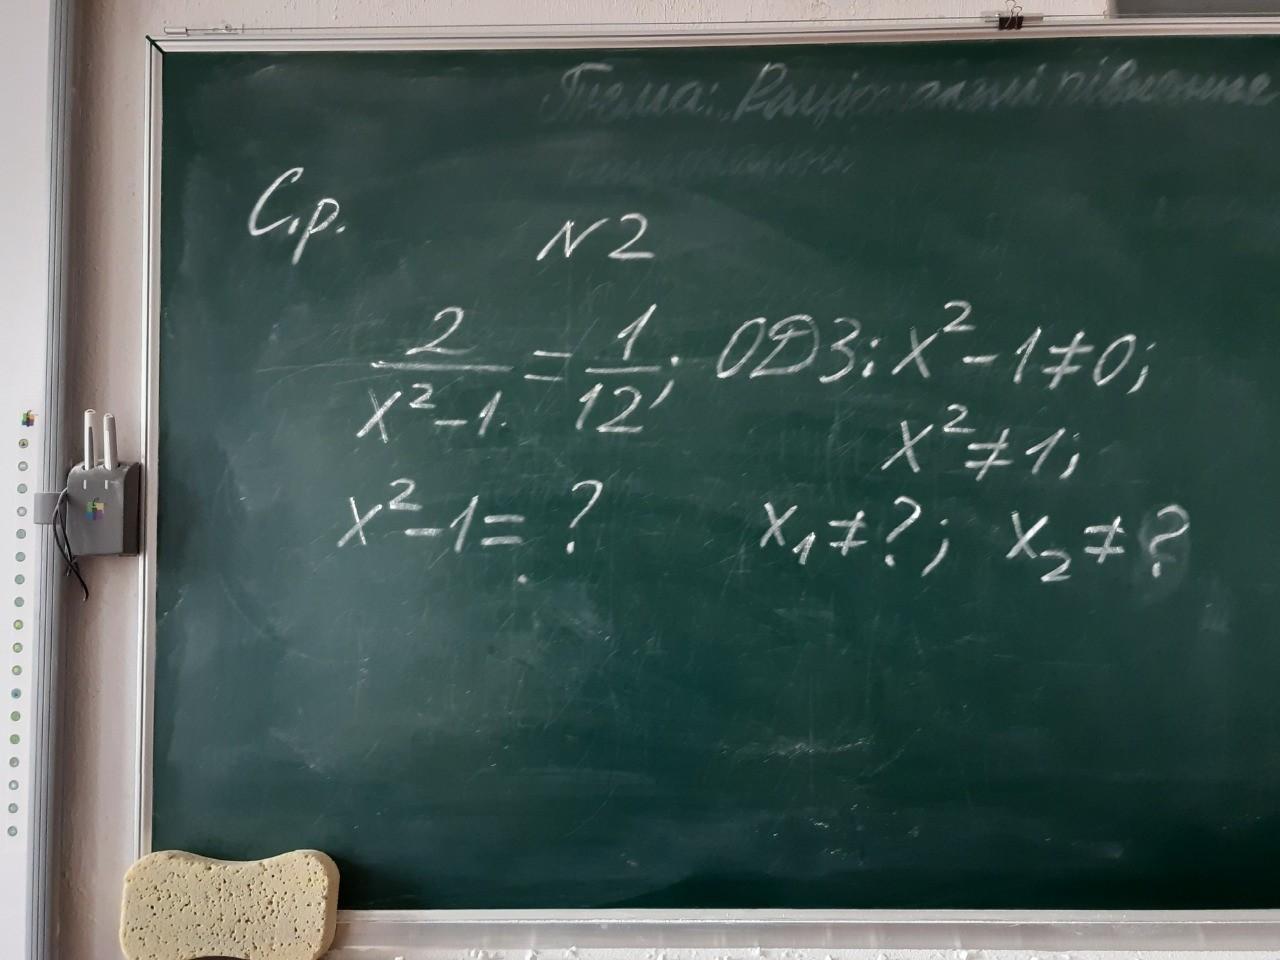 Тема: Раціональні рівняння
С.р.
N2
2/(x²-1) = 1/12; ОДЗ: x²-1≠0;
x²≠1;
x²-1=? x₁≠?; x₂≠?